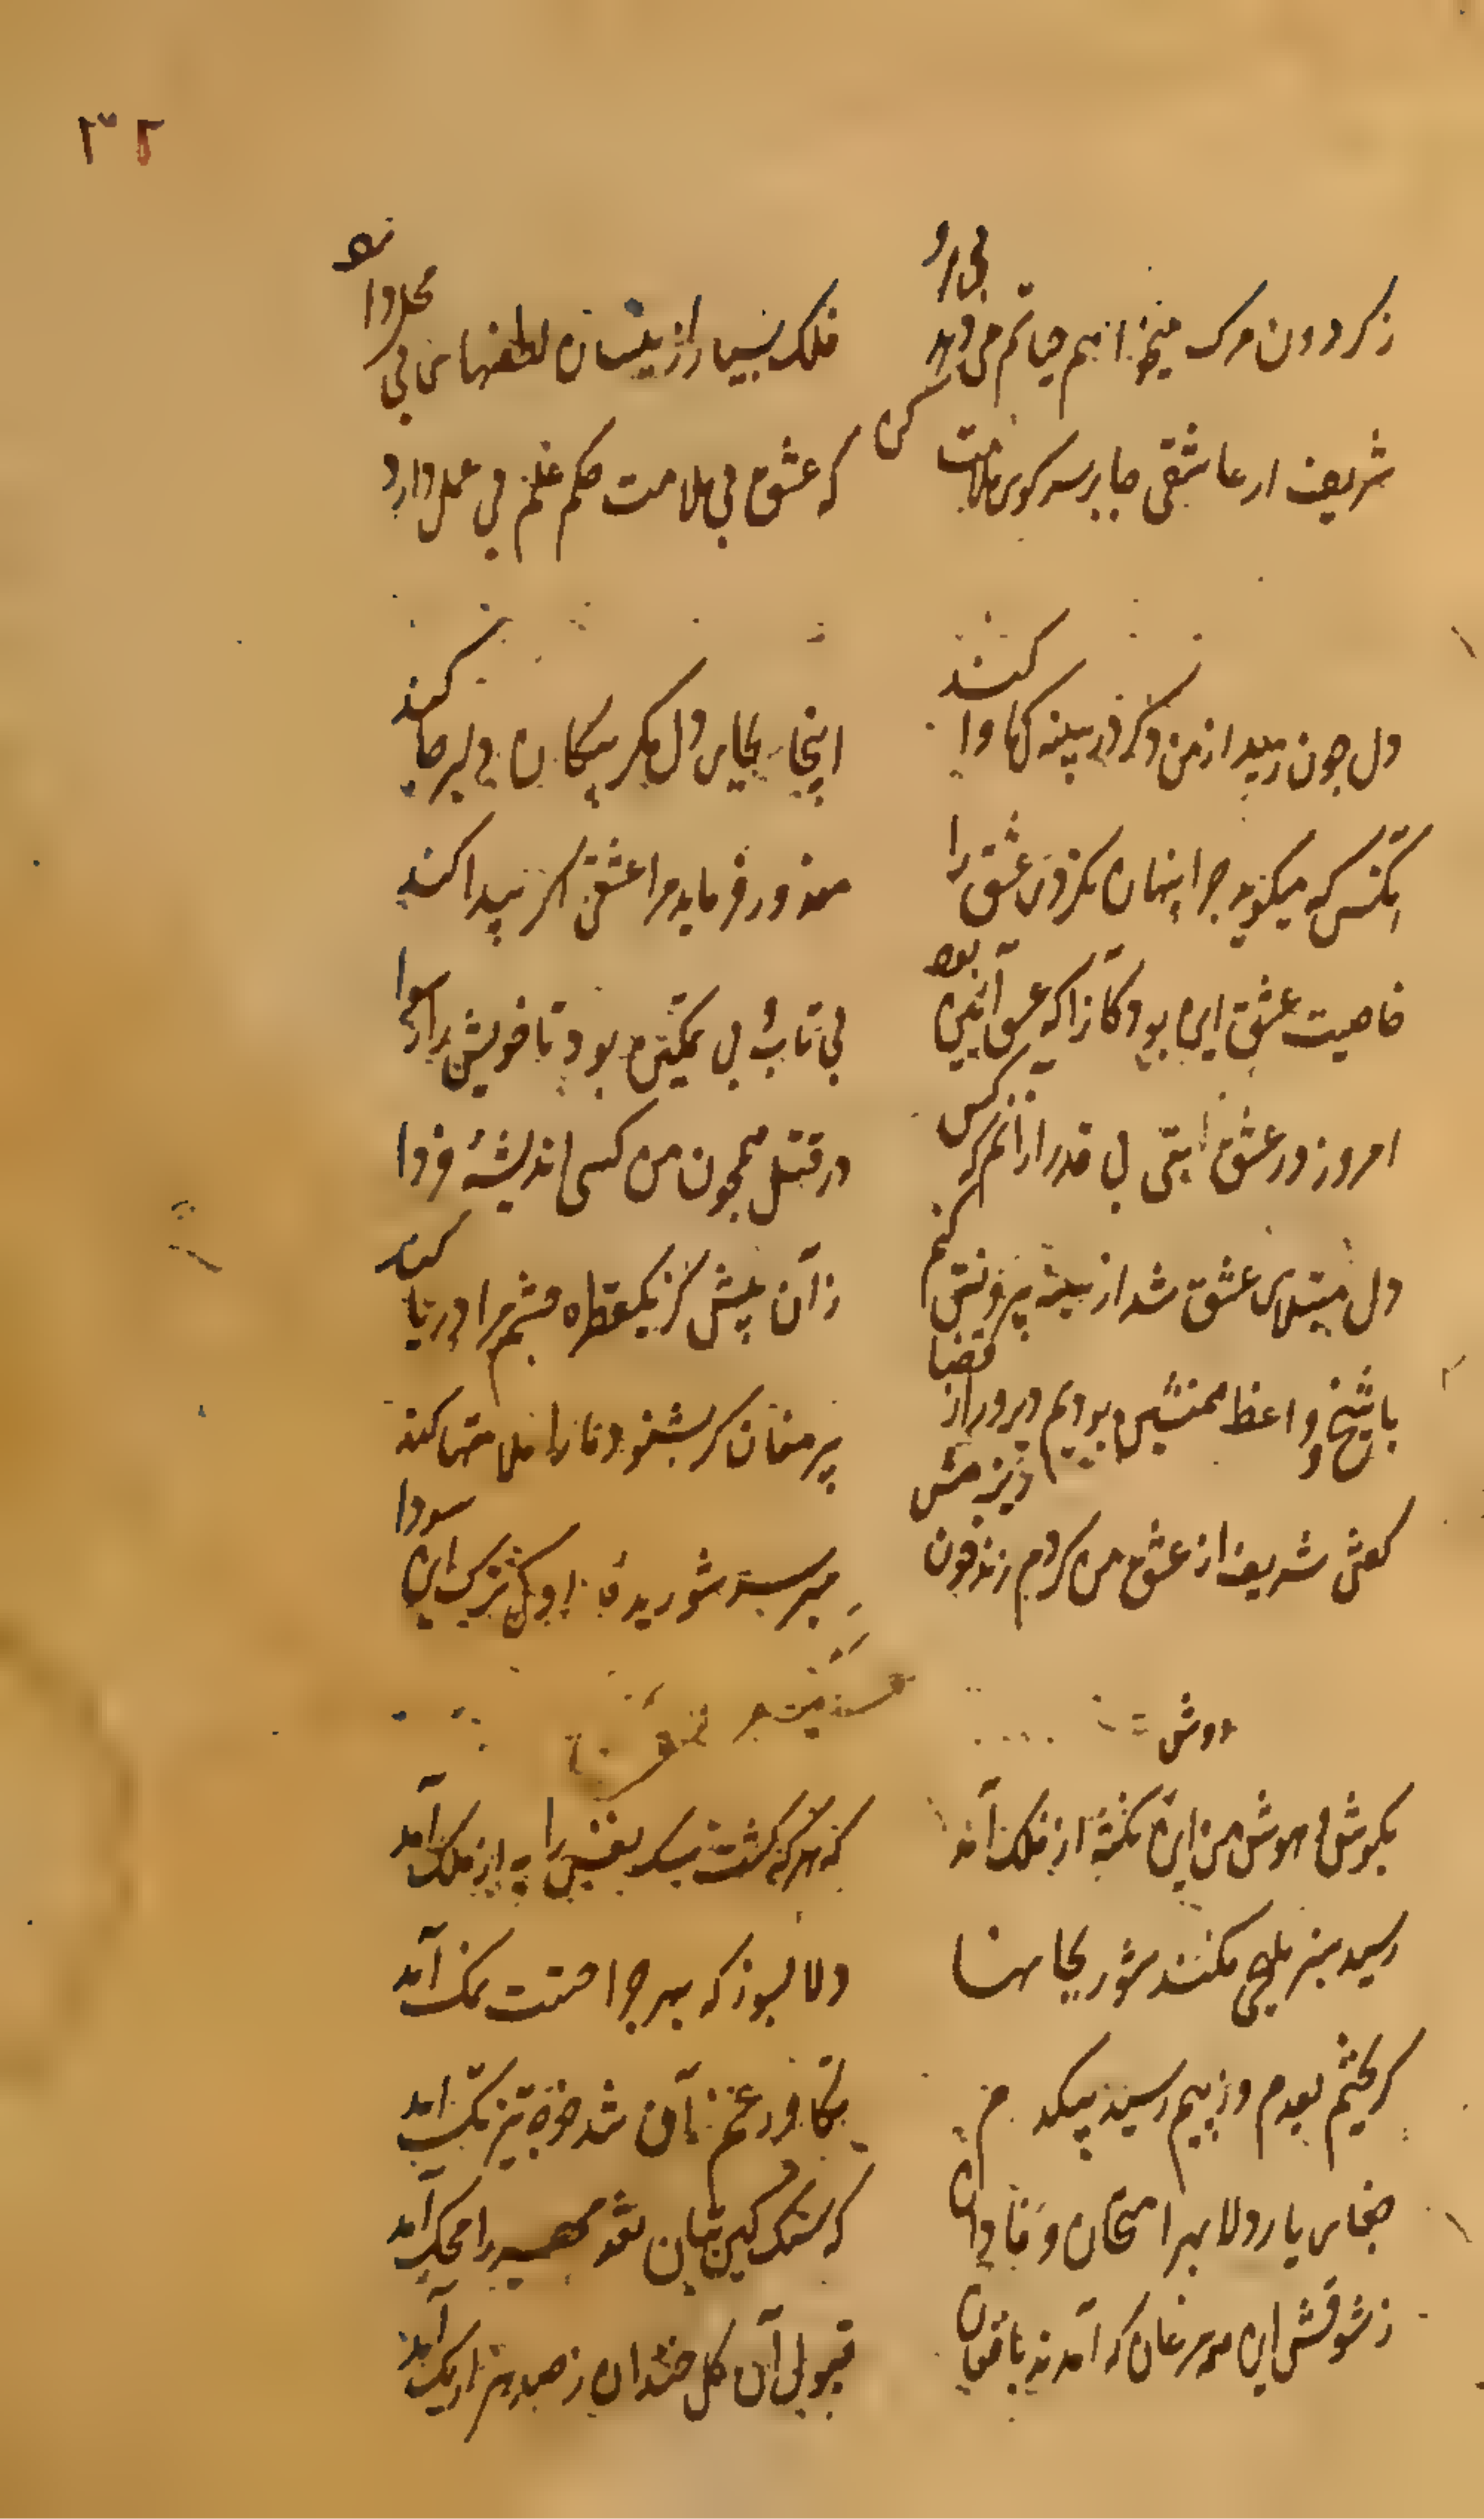 ۳۲
ز کردون مرک میخواهم حیاتم می دهد
فلک بسیار ازینسان لطفهای بی محل دارد
شریف ار عاشقی جا بر سر کوی ملامت کن
که عشق بی ملامت حکم علم بی عمل دارد
دل جون رمید از من دکر در سینه کی ماوا کند
اینجا بجای دل مکر پیکان دلبر جا کند
آنکس که میکوید جرا پنهان نکردی عشق را
معذور فرماید مرا عشق اکر پیدا کند
خاصیت عشق این بود کانرا که عشق آیین بود
بی تاب و بی تمکین بود تا خویش را رسوا
امروز در عشق ای بتی بی قدر ازانم کز کس
در قتل همجون من کسی اندیشه فردا
دل مبتلای عشق شد از سینه بیرونش کنم
زآن پیش کز یکقطره چشم مرا دریا کند
با شیخ و واعظ همنشین بودیم دیروز از قضا
پیر مغان کر بشنود ما را ملامتها کند
کفتی شریف از عشق من کردم
میر سر شوریده اول ترک این سودا
دوش
بکوش هوش من این نکته از فلک آمد
که هر که کشت سک نفس را به از ملک آمد
رسید سبز ملیحی مکنند شور بجانها
دلا بسوز که بهر جراحتت نمک آمد
کر بخشم بودم و از پیم رسید
آمد
جفای یار دلا بهر امتحان وفا دان
که سنک کین بتان نقد مهر را محک آمد
ز شوقش این همه مرغان که آمدند بافغان
قبول آن کل خندان ز صد هزار یک آمد